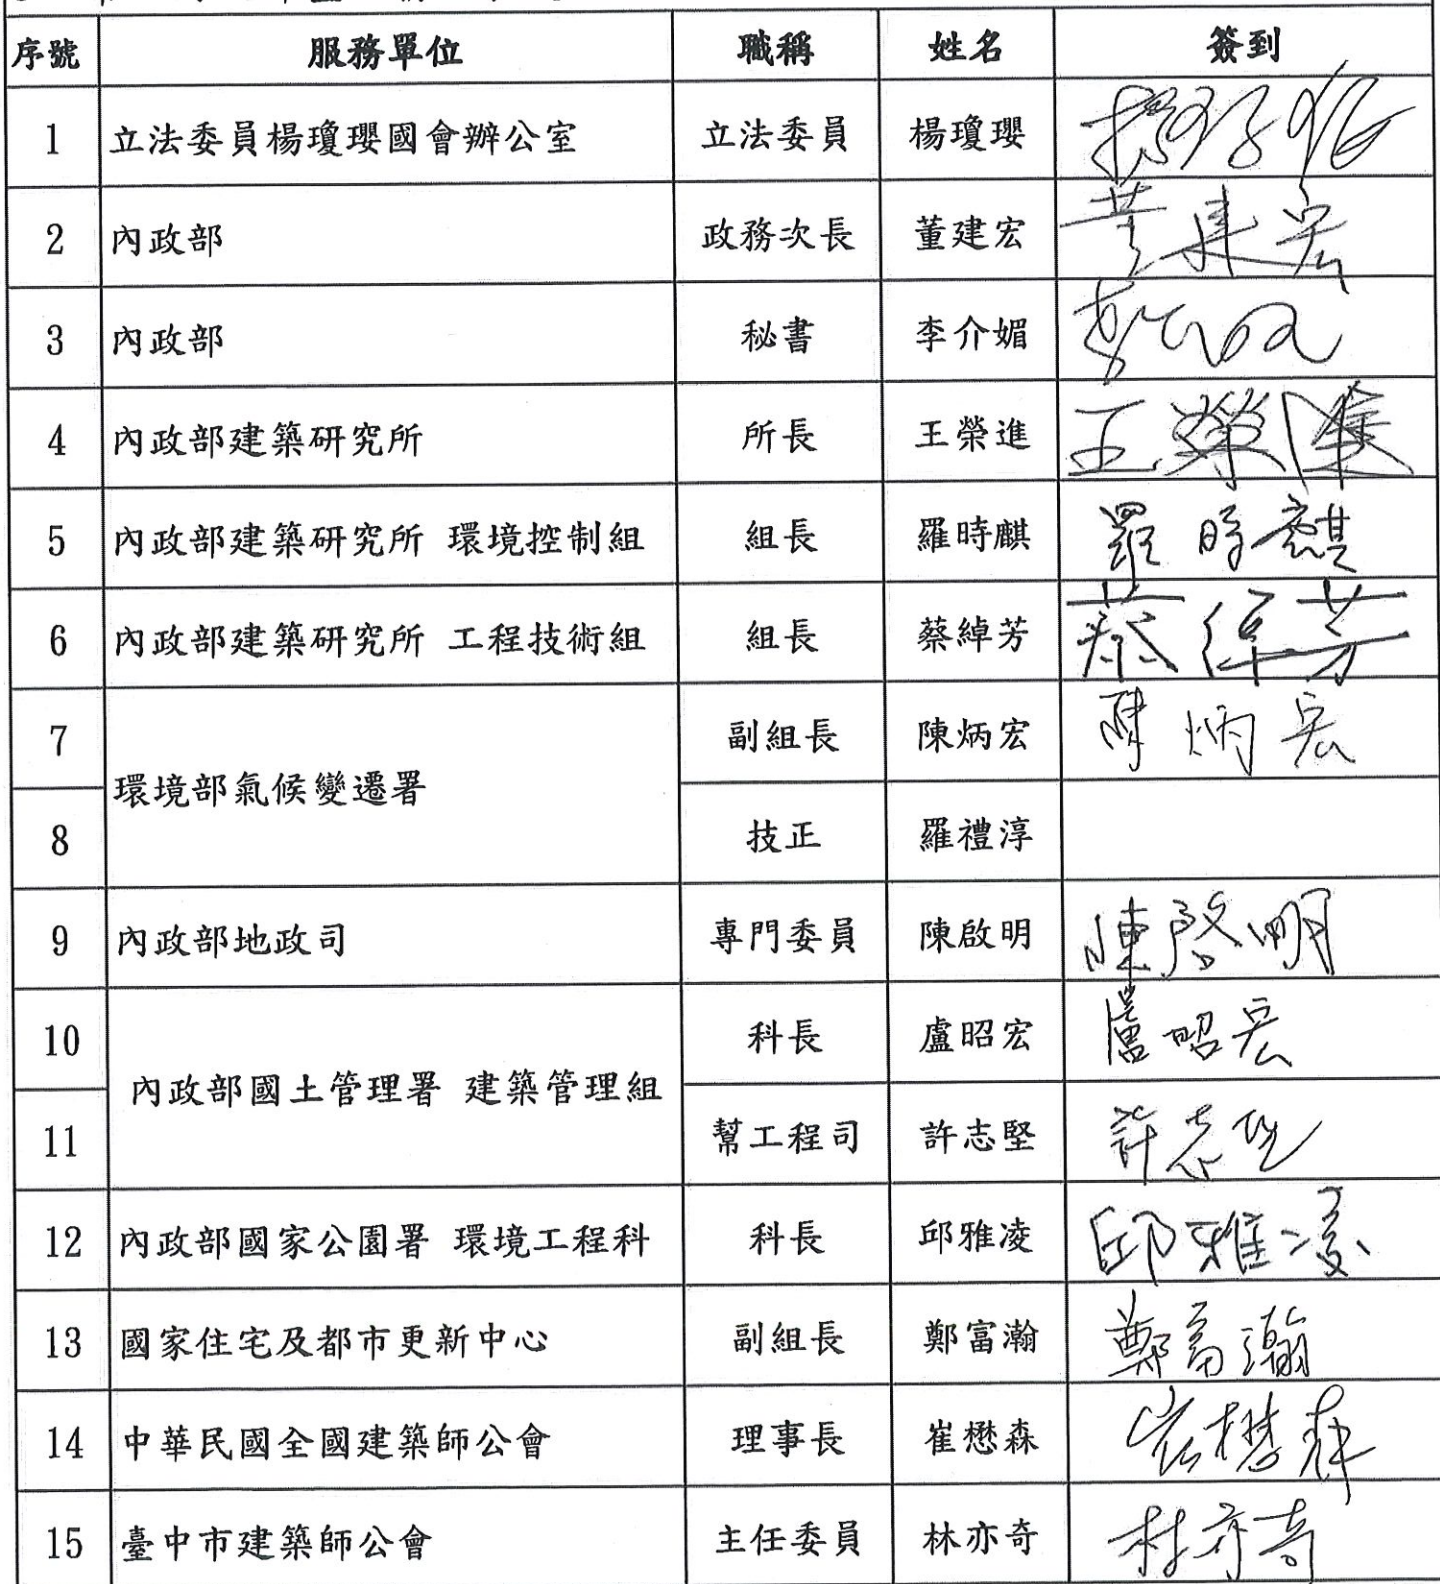 序號 服務單位 職稱 姓名 簽到
1 立法委員楊瓊瓔國會辦公室 立法委員 楊瓊瓔 楊瓊瓔
2 內政部 政務次長 董建宏 董建宏
3 內政部 秘書 李介媚 李介媚
4 內政部建築研究所 所長 王榮進 王榮進
5 內政部建築研究所 環境控制組 組長 羅時麒 羅時麒
6 內政部建築研究所 工程技術組 組長 蔡綽芳 蔡綽芳
7 環境部氣候變遷署 副組長 陳炳宏 陳炳宏
8 技正 羅禮淳
9 內政部地政司 專門委員 陳啟明 陳啓明
10 內政部國土管理署 建築管理組 科長 盧昭宏 盧昭宏
11 幫工程司 許志堅 許志堅
12 內政部國家公園署 環境工程科 科長 邱雅凌 邱雅凌
13 國家住宅及都市更新中心 副組長 鄭富瀚 鄭富瀚
14 中華民國全國建築師公會 理事長 崔懋森 崔懋森
15 臺中市建築師公會 主任委員 林亦奇 林亦奇